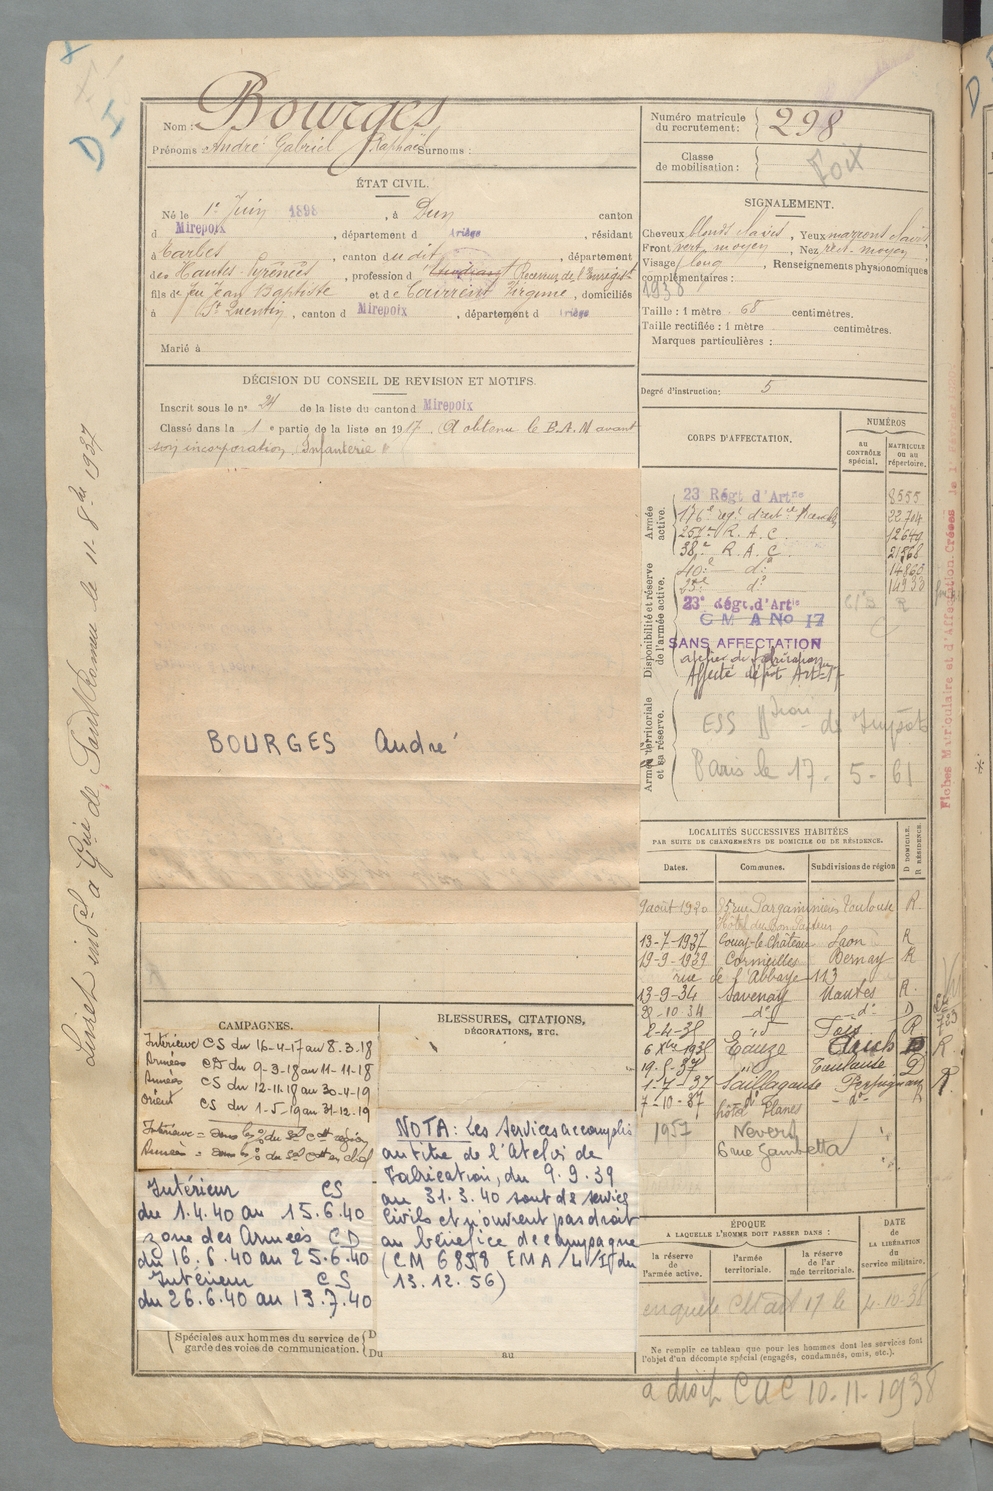 D I
Nom : Bourges
Prénoms : André Gabriel Raphaël Surnoms :
ÉTAT CIVIL.
Né le 1er Juin 1898, à Dun canton
d Mirepoix, département d Ariège, résidant
à Tarbes, canton du dit, département
des Hautes-Pyrénées, profession d Etudiant Receveur de l'Enregist
fils de feu Jean Baptiste et de Courrent Virginie, domiciliés
à St Quentin, canton d Mirepoix, département d Ariège
Marié à
DÉCISION DU CONSEIL DE REVISION ET MOTIFS.
Inscrit sous le n° 24 de la liste du canton d Mirepoix
Classé dans la 1e partie de la liste en 1917. A obtenu le B.A.M avant
son incorporation. Infanterie
BOURGES André
CAMPAGNES.
Intérieur CS du 16-4-17 au 8-3-18
Armées CD du 9-3-18 au 11-11-18
Armées CS du 12-11-18 au 30-4-19
Orient CS du 1-5-19 au 31-12-19
Intérieur
CS
du 1.4.40 au 15.6.40
zone des Armées CD
du 16.6.40 au 25.6.40
Intérieur CS
du 26.6.40 au 13.7.40
Spéciales aux hommes du service de
garde des voies de communication.
D
Du au
BLESSURES, CITATIONS,
DÉCORATIONS, ETC.
NOTA : Les services accomplis
au titre de l'Atelier de
Fabrication, du 9.9.39
au 31.3.40 sont de service
civils et n'ouvrent pas droit
au bénéfice de campagne
(CM 6858 EMA/4/ du
13.12.56)
Numéro matricule
du recrutement : 298
Classe
de mobilisation :
Foix
SIGNALEMENT.
Cheveux blonds, Yeux marrons
Front vert. moyen, Nez rect. moyen
Visage long, Renseignements physionomiques
complémentaires :
1938
Taille : 1 mètre 68 centimètres.
Taille rectifiée : 1 mètre centimètres.
Marques particulières :
Degré d'instruction : 5
CORPS D'AFFECTATION.
NUMÉROS
au
CONTRÔLE
spécial.
MATRICULE
ou au
répertoire.
Armée
active.
Disponibilité et réserve
de l'armée active.
Armée territoriale
et sa réserve.
23 Régt d'Artie 8555
176e
257e R.A.C. 12649
38e R.A.C. 21568
40e do 14863
23e do 14933
23e Régt. d'Artie
C M A No 17
SANS AFFECTATION
atelier de fabrication
Affecté dépôt Art 17
ESS
Paris le 17-5-61
LOCALITÉS SUCCESSIVES HABITÉES
PAR SUITE DE CHANGEMENTS DE DOMICILE OU DE RÉSIDENCE.
Dates. Communes. Subdivisions de région
D DOMICILE.
R RÉSIDENCE.
9 août 1920 85 rue Pargaminières Toulouse R
Hôtel du Bon Pasteur
13-7-1927 Coucy-le-Château Laon R
19-9-1929 Cormeilles Bernay R
rue de l'Abbaye 113
13-9-34 Savenay Nantes R.
22-10-34 do do D
2-4-35 Foix R
6 Xbre 1935 Eauze Auch
19-5-37 Toulouse D
1-7-37 Saillagouse Perpignan R
7-10-37 do do R
hôtel Planes
1957 Nevers
6 rue Gambetta
ÉPOQUE
A LAQUELLE L'HOMME DOIT PASSER DANS :
DATE
DE LA
LIBÉRATION
du
service militaire.
la réserve
de
l'armée active.
l'armée
territoriale.
la réserve
de l'ar
mée territoriale.
enquête 17 le 4-10-38
Ne remplir ce tableau que pour les hommes dont les services font
l'objet d'un décompte spécial (engagés, condamnés, omis, etc.).
a droit CAC 10-11-1938